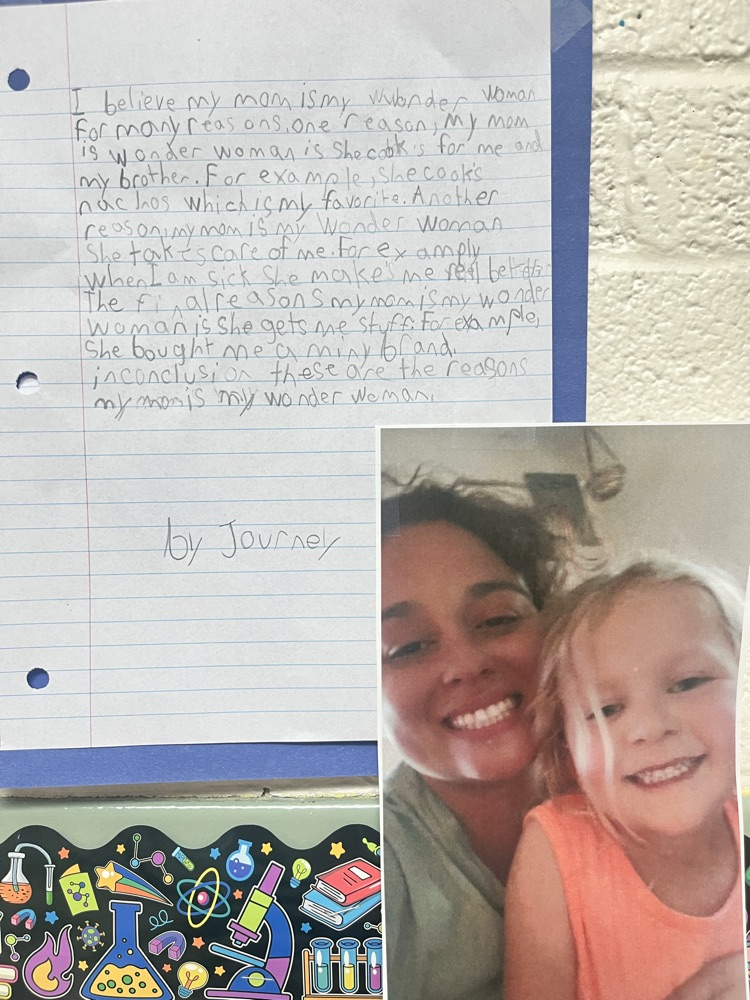 I believe my mom is my wwonder woman
for many reasons. one reason, my mom
is wonder woman is she cook's for me and
my brother. For example, she cook's
nachos which is my favorite. Another
reason my mom is my wonder woman
She takes care of me. For examply
when I am sick she make's me feel better
The final reasons my mom is my wonder
woman is she gets me stuff. For example,
She bought me a miny brand.
inconclusion these are the reasons
my mom is my wonder woman.
by Journey